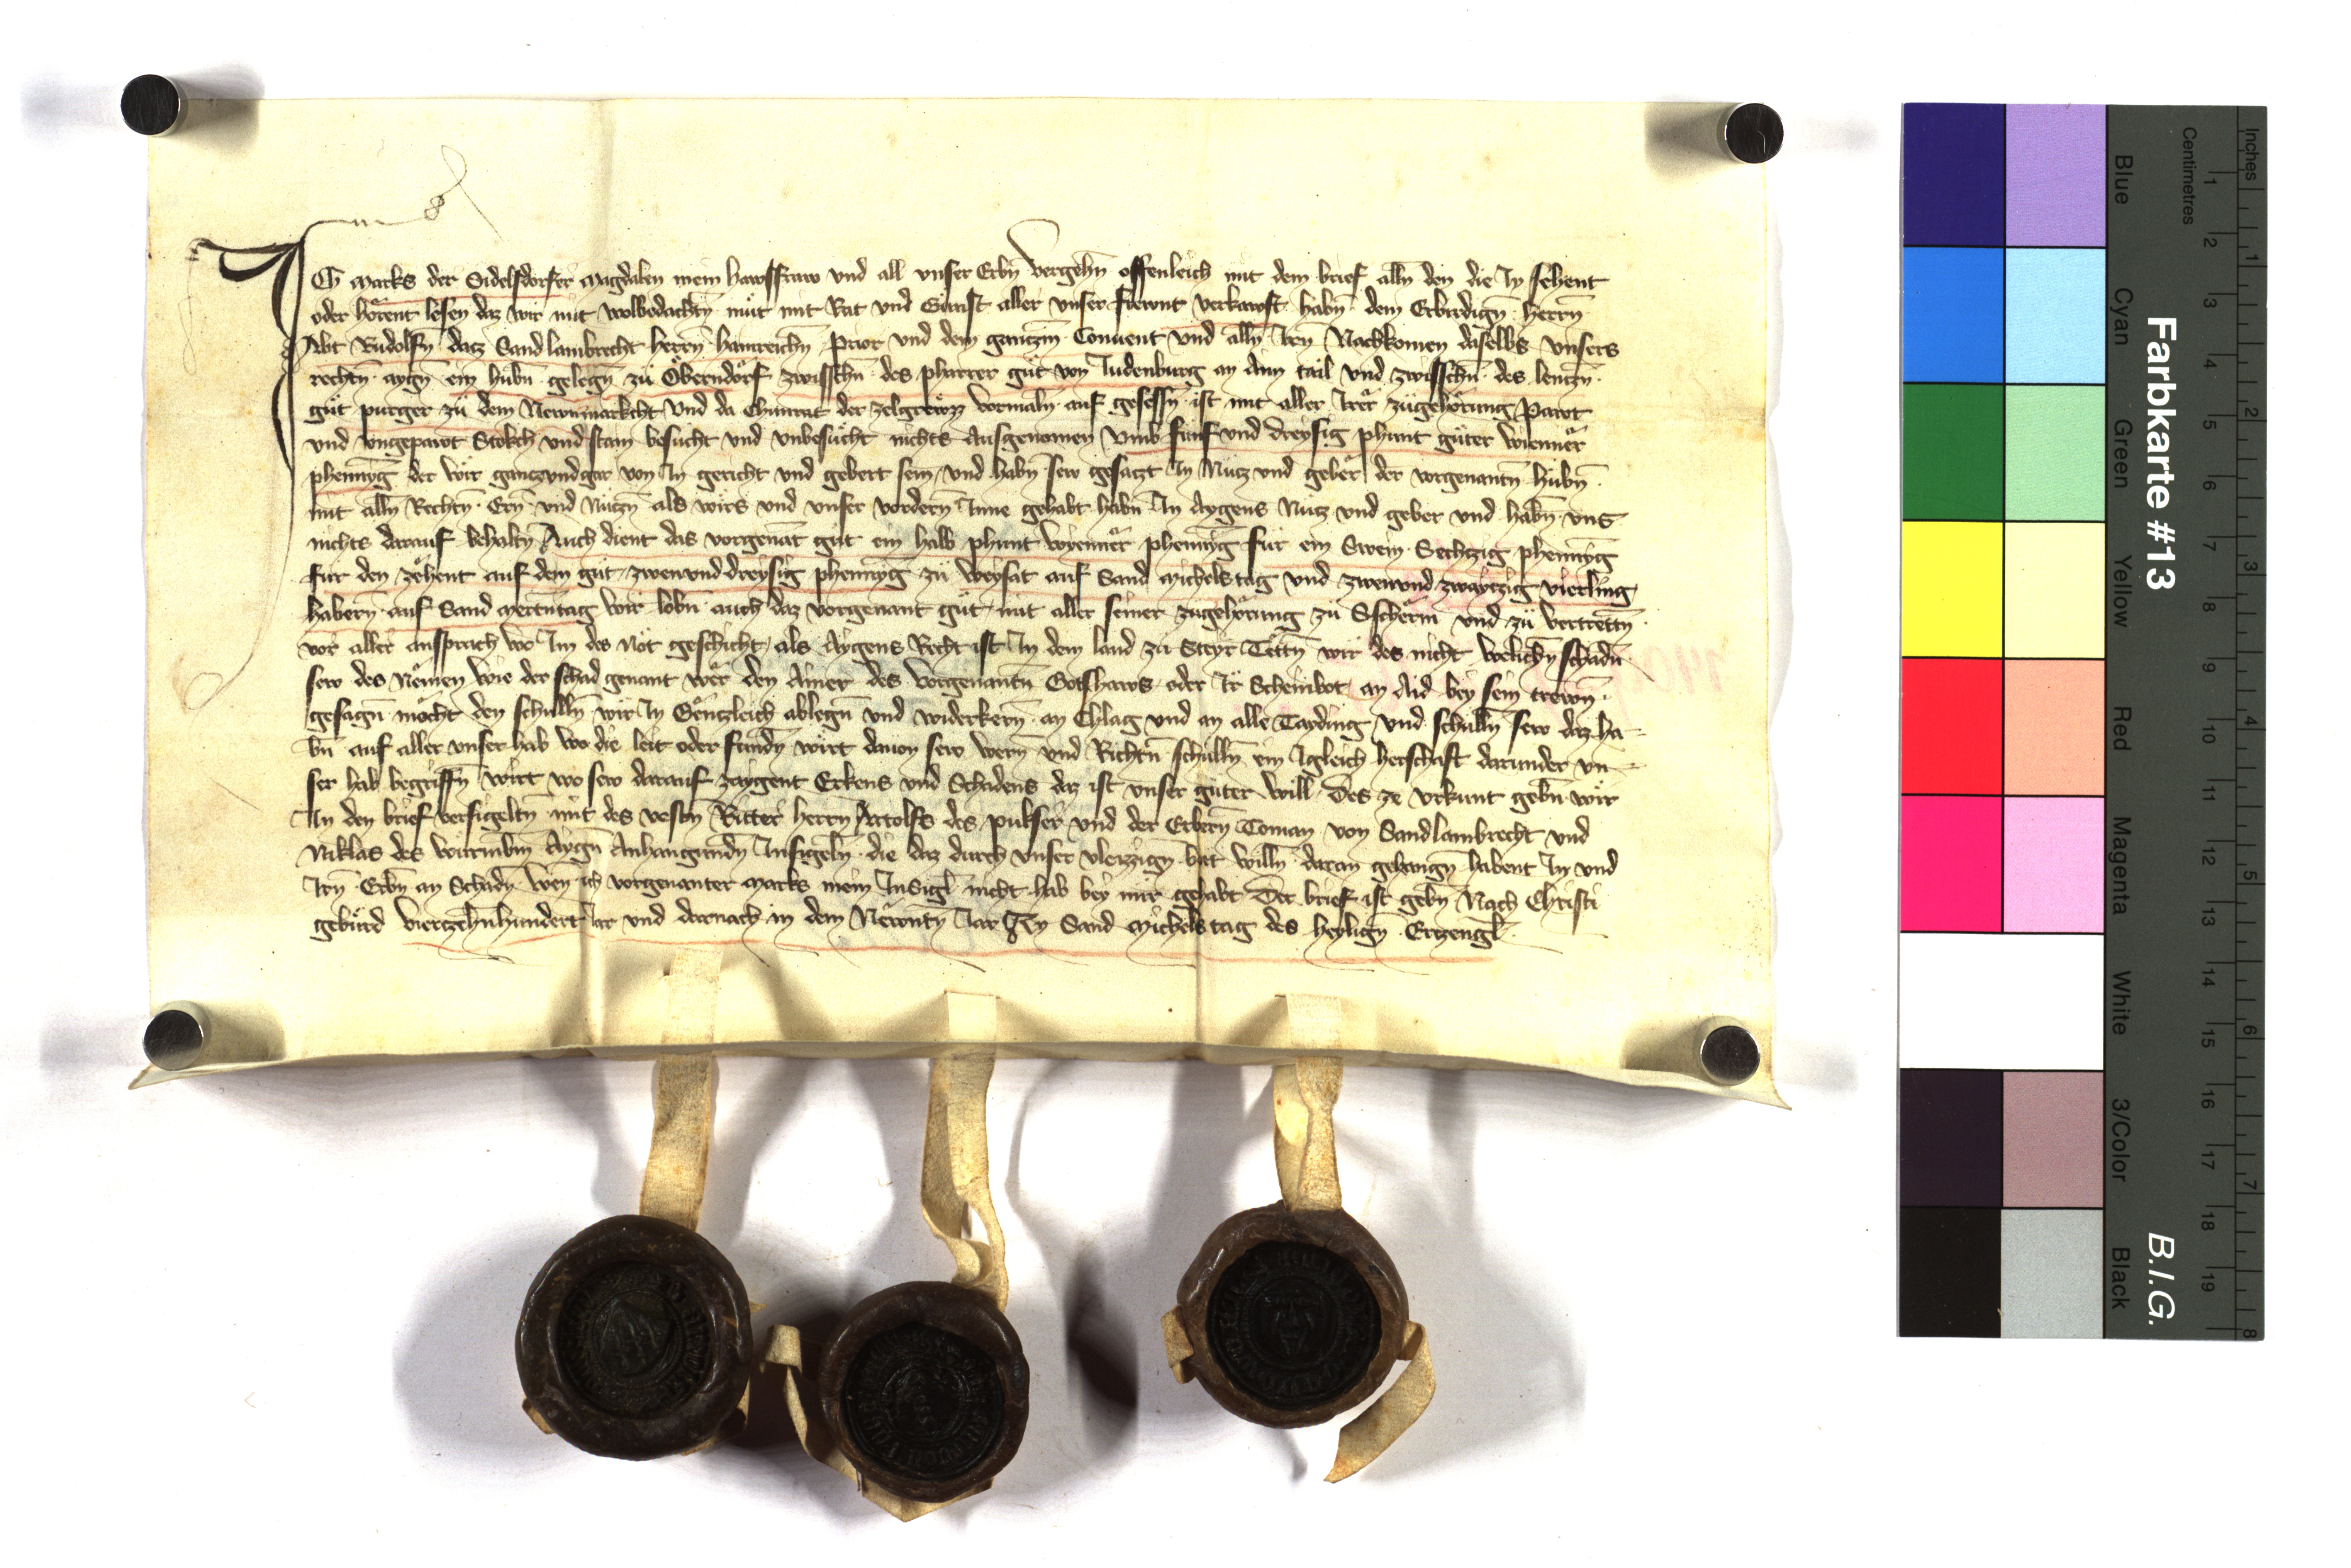 Ich Marks der Sidelsdorfer Magdalen mein hawsfraw vnd all vnser Erbn̄ vergehn̄ offenleich mit dem brief alln̄ den die In sehent
oder hörent lesen daz wir mit wolbedachtn̄ müt mit Rat vnd Gunst aller vnser frewnt verkawft habn̄ dem Erbirdign̄ herrn̄
Abt Rudolfn̄ datz Sand lambrecht herrn̄ hainreichn̄ Prior vnd dem gantzm̄ Conuent vnd alln̄ Iren Nachkomen daselbs vnsers
rechtn̄ aygn̄ ein hübn̄ gelegn̄ zü Oberndorf zwisschn̄ des pharrer güt von Judenburg an Aim tail vnd zwisschn̄ des lentzn̄
güt purger zü dem Newnmarkcht vnd da Chunrat der vormaln̄ auf gesessn̄ ist mit aller Irer zügehörung Pawt
vnd vngepawt Stokch vnd stain besücht vnd vnbesücht nichts Ausgenomen vmb fünf vnd dreysig phunt güter wienner
phenn̄yg der wir gantz vnd gar von In gericht vnd gebert sein vnd habn̄ sew gesatzt In Nütz vnd geber der vorgenantn̄ hübn̄
mit alln̄ Rechtn̄ Ern̄ vnd Nützn̄ als wirs vnd vnser vordern̄ Inne gehabt habn̄ In Aygens Nütz vnd geber vnd habn̄ vns
nichts darauf behaltn̄ Auch dient das vorgenāt güt ein halb phunt wyenner phenn̄yg für ein Swein Sechtzig phenn̄yg
für den zehent auf dem güt zwenvnddreysig phenn̄yg zü weysat auf Sand Michelstag vnd zwenvnd zwaytzig vierling
habern̄ auf Sand Mertntag wir lobn̄ auch daz vorgenant güt mit aller seiner zügehörung zü Schermn̄ vnd zü vertretn̄
vor aller ansprach wo Im des Not geschicht als Aygens Recht ist In dem land zü Steyr Tettn̄ wir des nicht welichn̄ schadn̄
sew des Nemen wie der schad genant wer den Ainer des vorgenantn̄ Gotshaws oder Ir Scheinbot an Aid bey sein trewn̄
gesagn̄ möcht den schülln̄ wir In Gentzleich ablegn̄ vnd widerkern̄ an Chlag vnd an alle Tayding vnd schülln̄ sew daz ha-
bn̄ auf aller vnser hab wo die leit oder fundn̄ wirt dauon sew wern̄ vnd Richtn̄ schülln̄ ein Igleich herschaft darunder vn-
ser hab begriffn̄ wirt wo sew darauf zaygent Erkens vnd Schadens daz ist vnser güter will Des ze vrkunt gebn̄ wir
In den brief versigeltn̄ mit des vestn̄ Ritter herrn̄ Artolfs des pukser vnd der Erbern̄ Toman von Sandlambrecht vnd
Niklas des Aygn̄ Anhangundn̄ Insigeln̄ die daz durch vnser vleizzign̄ bet willn̄ daran gehangn̄ habent In vnd
Irn̄ Erbn̄ an Schadn̄ wen ich vorgenanter Marks mein InSigl nicht hab bey mir gehabt Der brief ist gebn̄ Nach Christi
gebürd vierzehnhundert Iar vnd darnach in dem Newntn̄ Iar An Sand Michelstag des heylign̄ Ertzengl
Farbkarte #13
B.I.G.
Inches
Centimetres
1 2 3 4 5 6 7 8 9 10 11 12 13 14 15 16 17 18 19
1 2 3 4 5 6 7 8
Blue
Cyan
Green
Yellow
Red
Magenta
White
3/Color
Black